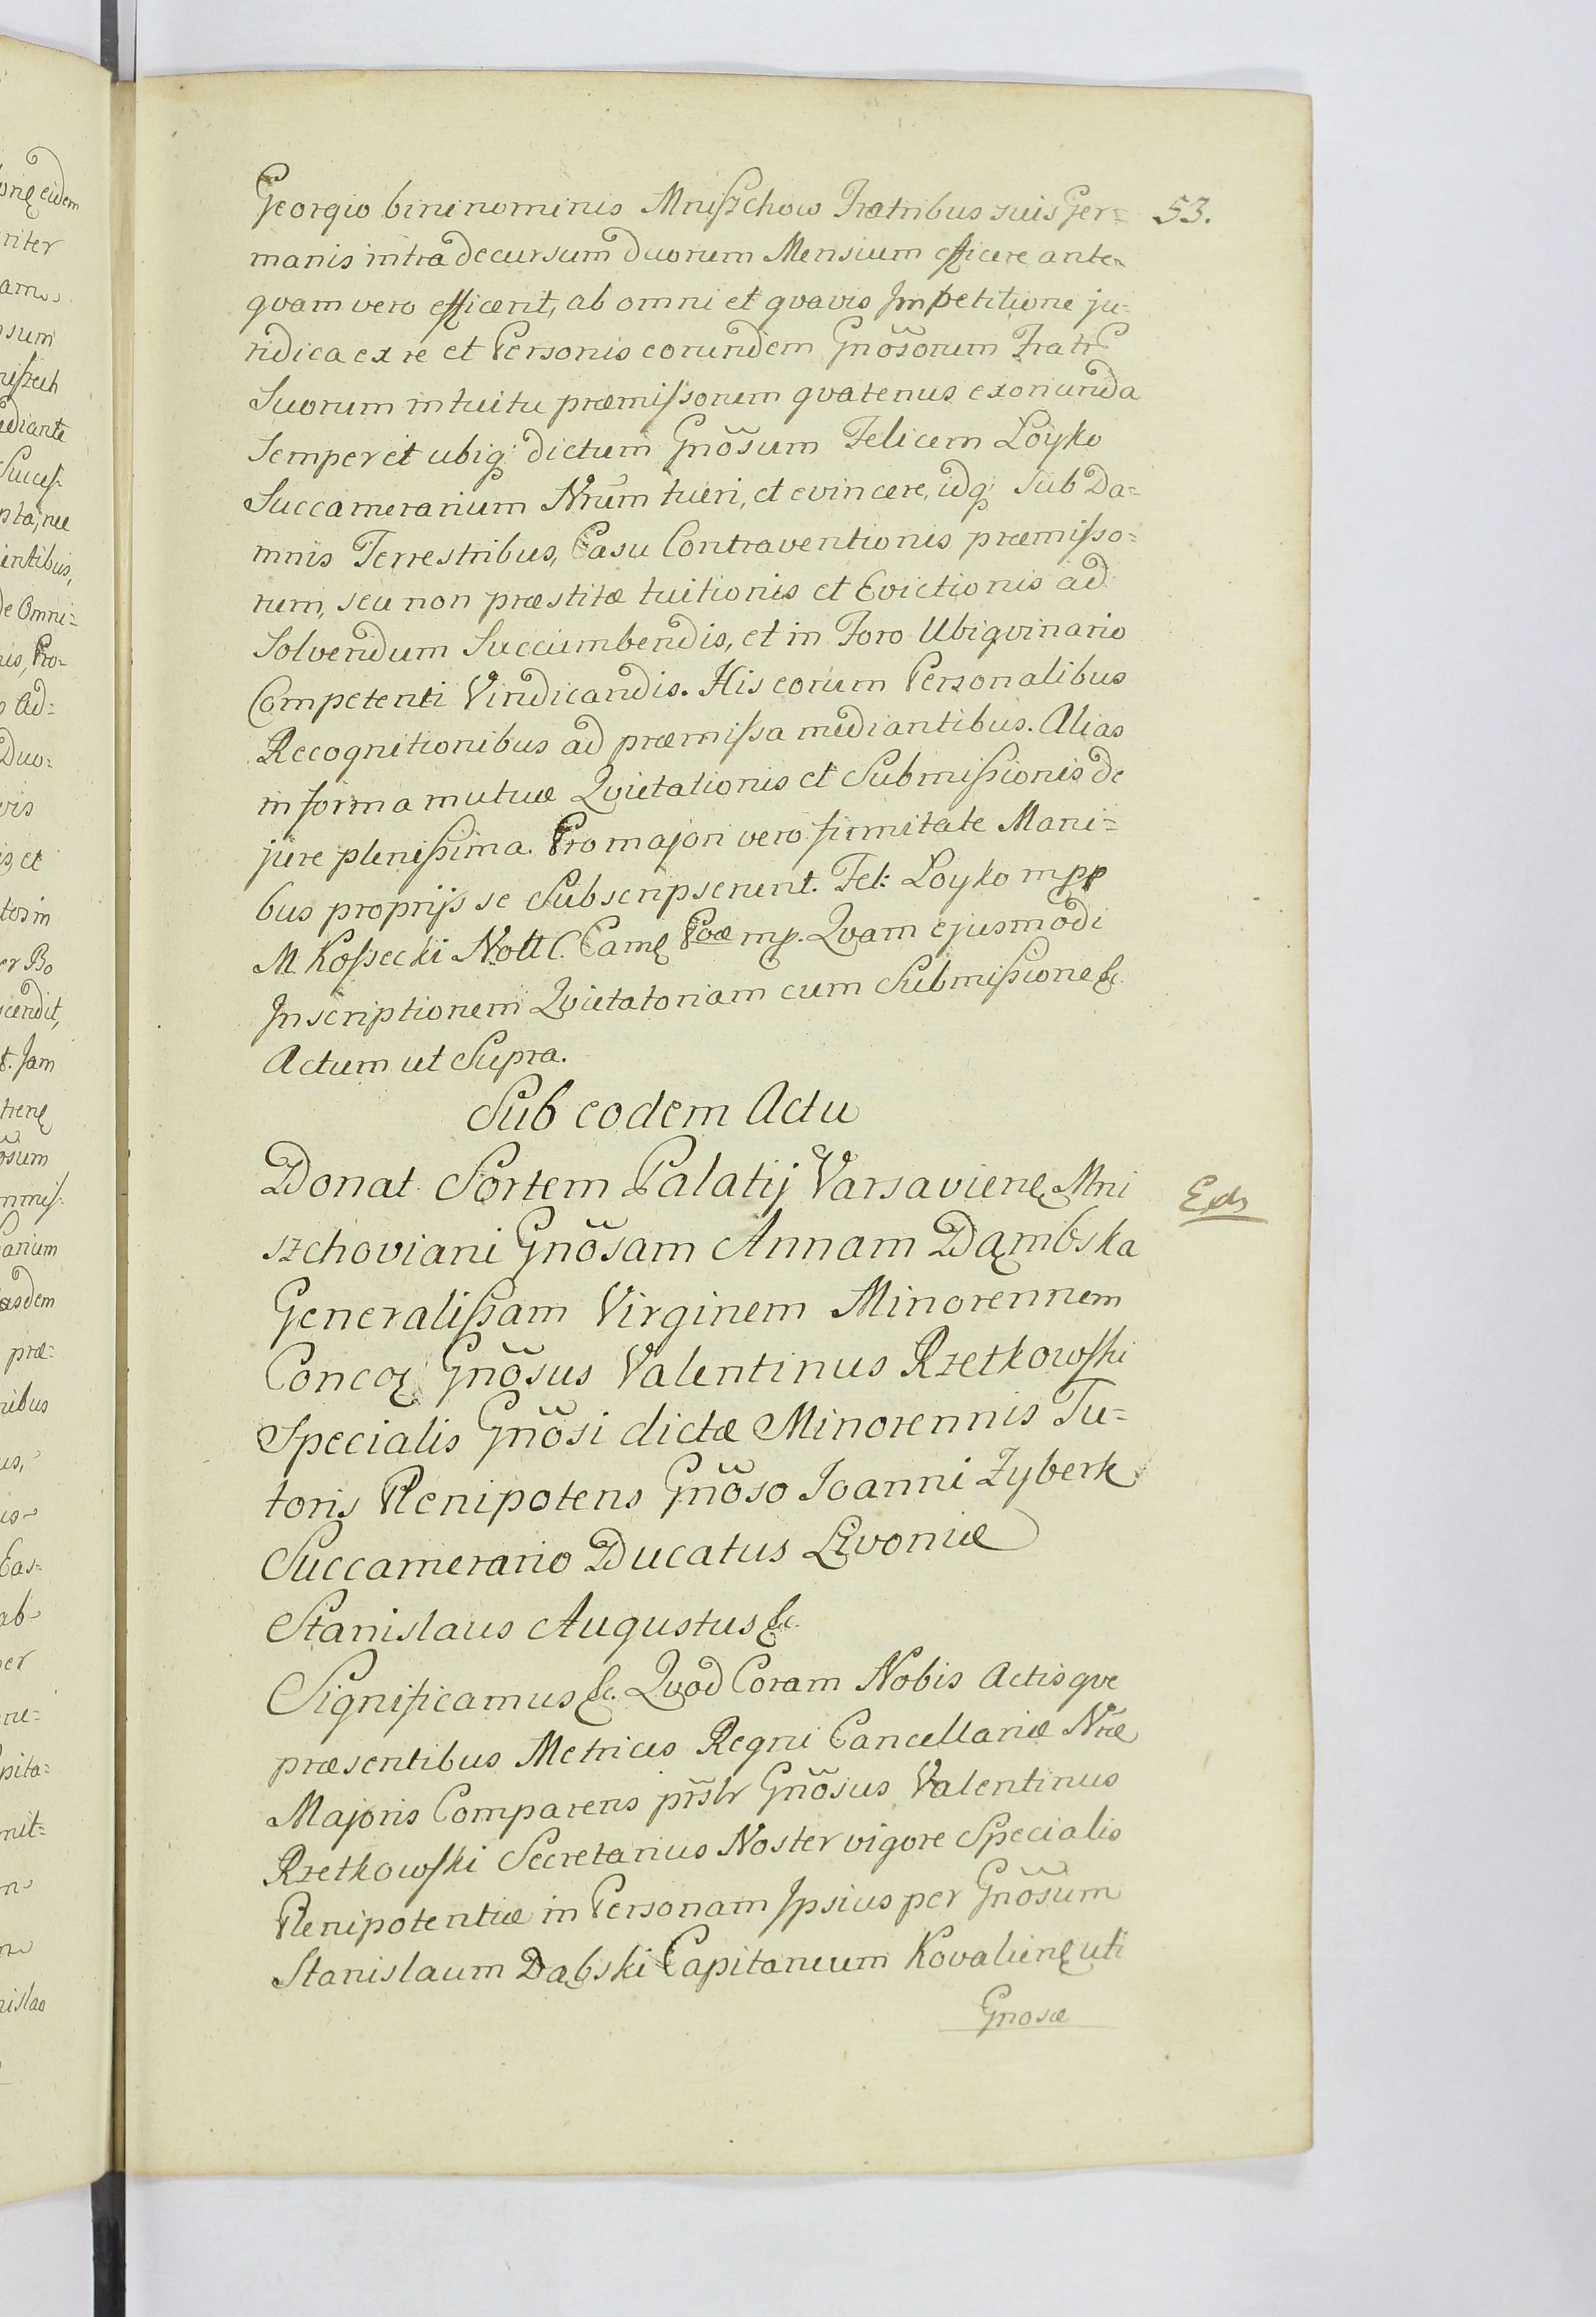 Georgio bini nominis Mniszchow Fratribus suis Ger= 53.
manis intra decursum duorum Mensium efficere ante=
qvam vero efficerit, ab omni et qvavis Impetitione ju-
ridica ex re et Personis eorundem Gnõsorum Fratr
Suorum intuitu præmissorum qvatenus exoriunda
Semper et ubiq: dictum Gnõsum Felicem Loyko
Succamerarium Nrum tueri, et evincere, idq; sub Da=
mnis Terrestribus, Casu Contraventionis præmisso=
rum, seu non præstitæ tuitionis et Evictionis ad
Solvendum Succumbendis, et in Foro Ubiqvinario
Competenti Vindicandis. His eorum Personalibus
Recognitionibus ad præmissa mediantibus. Alias
in forma mutuæ Qvietationis et Submissionis de
jure plenissima. Pro majori vero firmitate Mani=
bus proprijs se Subscripserunt. Fel: Loyko mpp
M. Kossecki Nott C. Camę Pvæ mp. Qvam ejusmodi
Inscriptionem Qvietatoriam cum Submissione &c.
Actum ut Supra.
Sub eodem Actu
Donat Sortem Palatij Varsavienę Mni
szchoviani Gnõsam Annam Dąmbska
Generalissam Virginem Minorennem
Gnõsus Valentinus Rzetkowski
Specialis Gnõsi dictæ Minorennis Tu=
toris Plenipotens Gnõso Joanni Zyberk
Succamerario Ducatus Livoniæ
Stanislaus Augustus &c.
Significamus &c. Qvod Coram Nobis Actisqve
præsentibus Metrices Regni Cancellariæ Nræ
Majoris Comparens prslr Gnõsus Valentinus
Rzetkowski Secretarius Noster vigore Specialis
Plenipotentiæ in Personam Ipsius per Gnõsum
Stanislaum Dąbski Capitaneum Kovalienę uti
Gnosæ